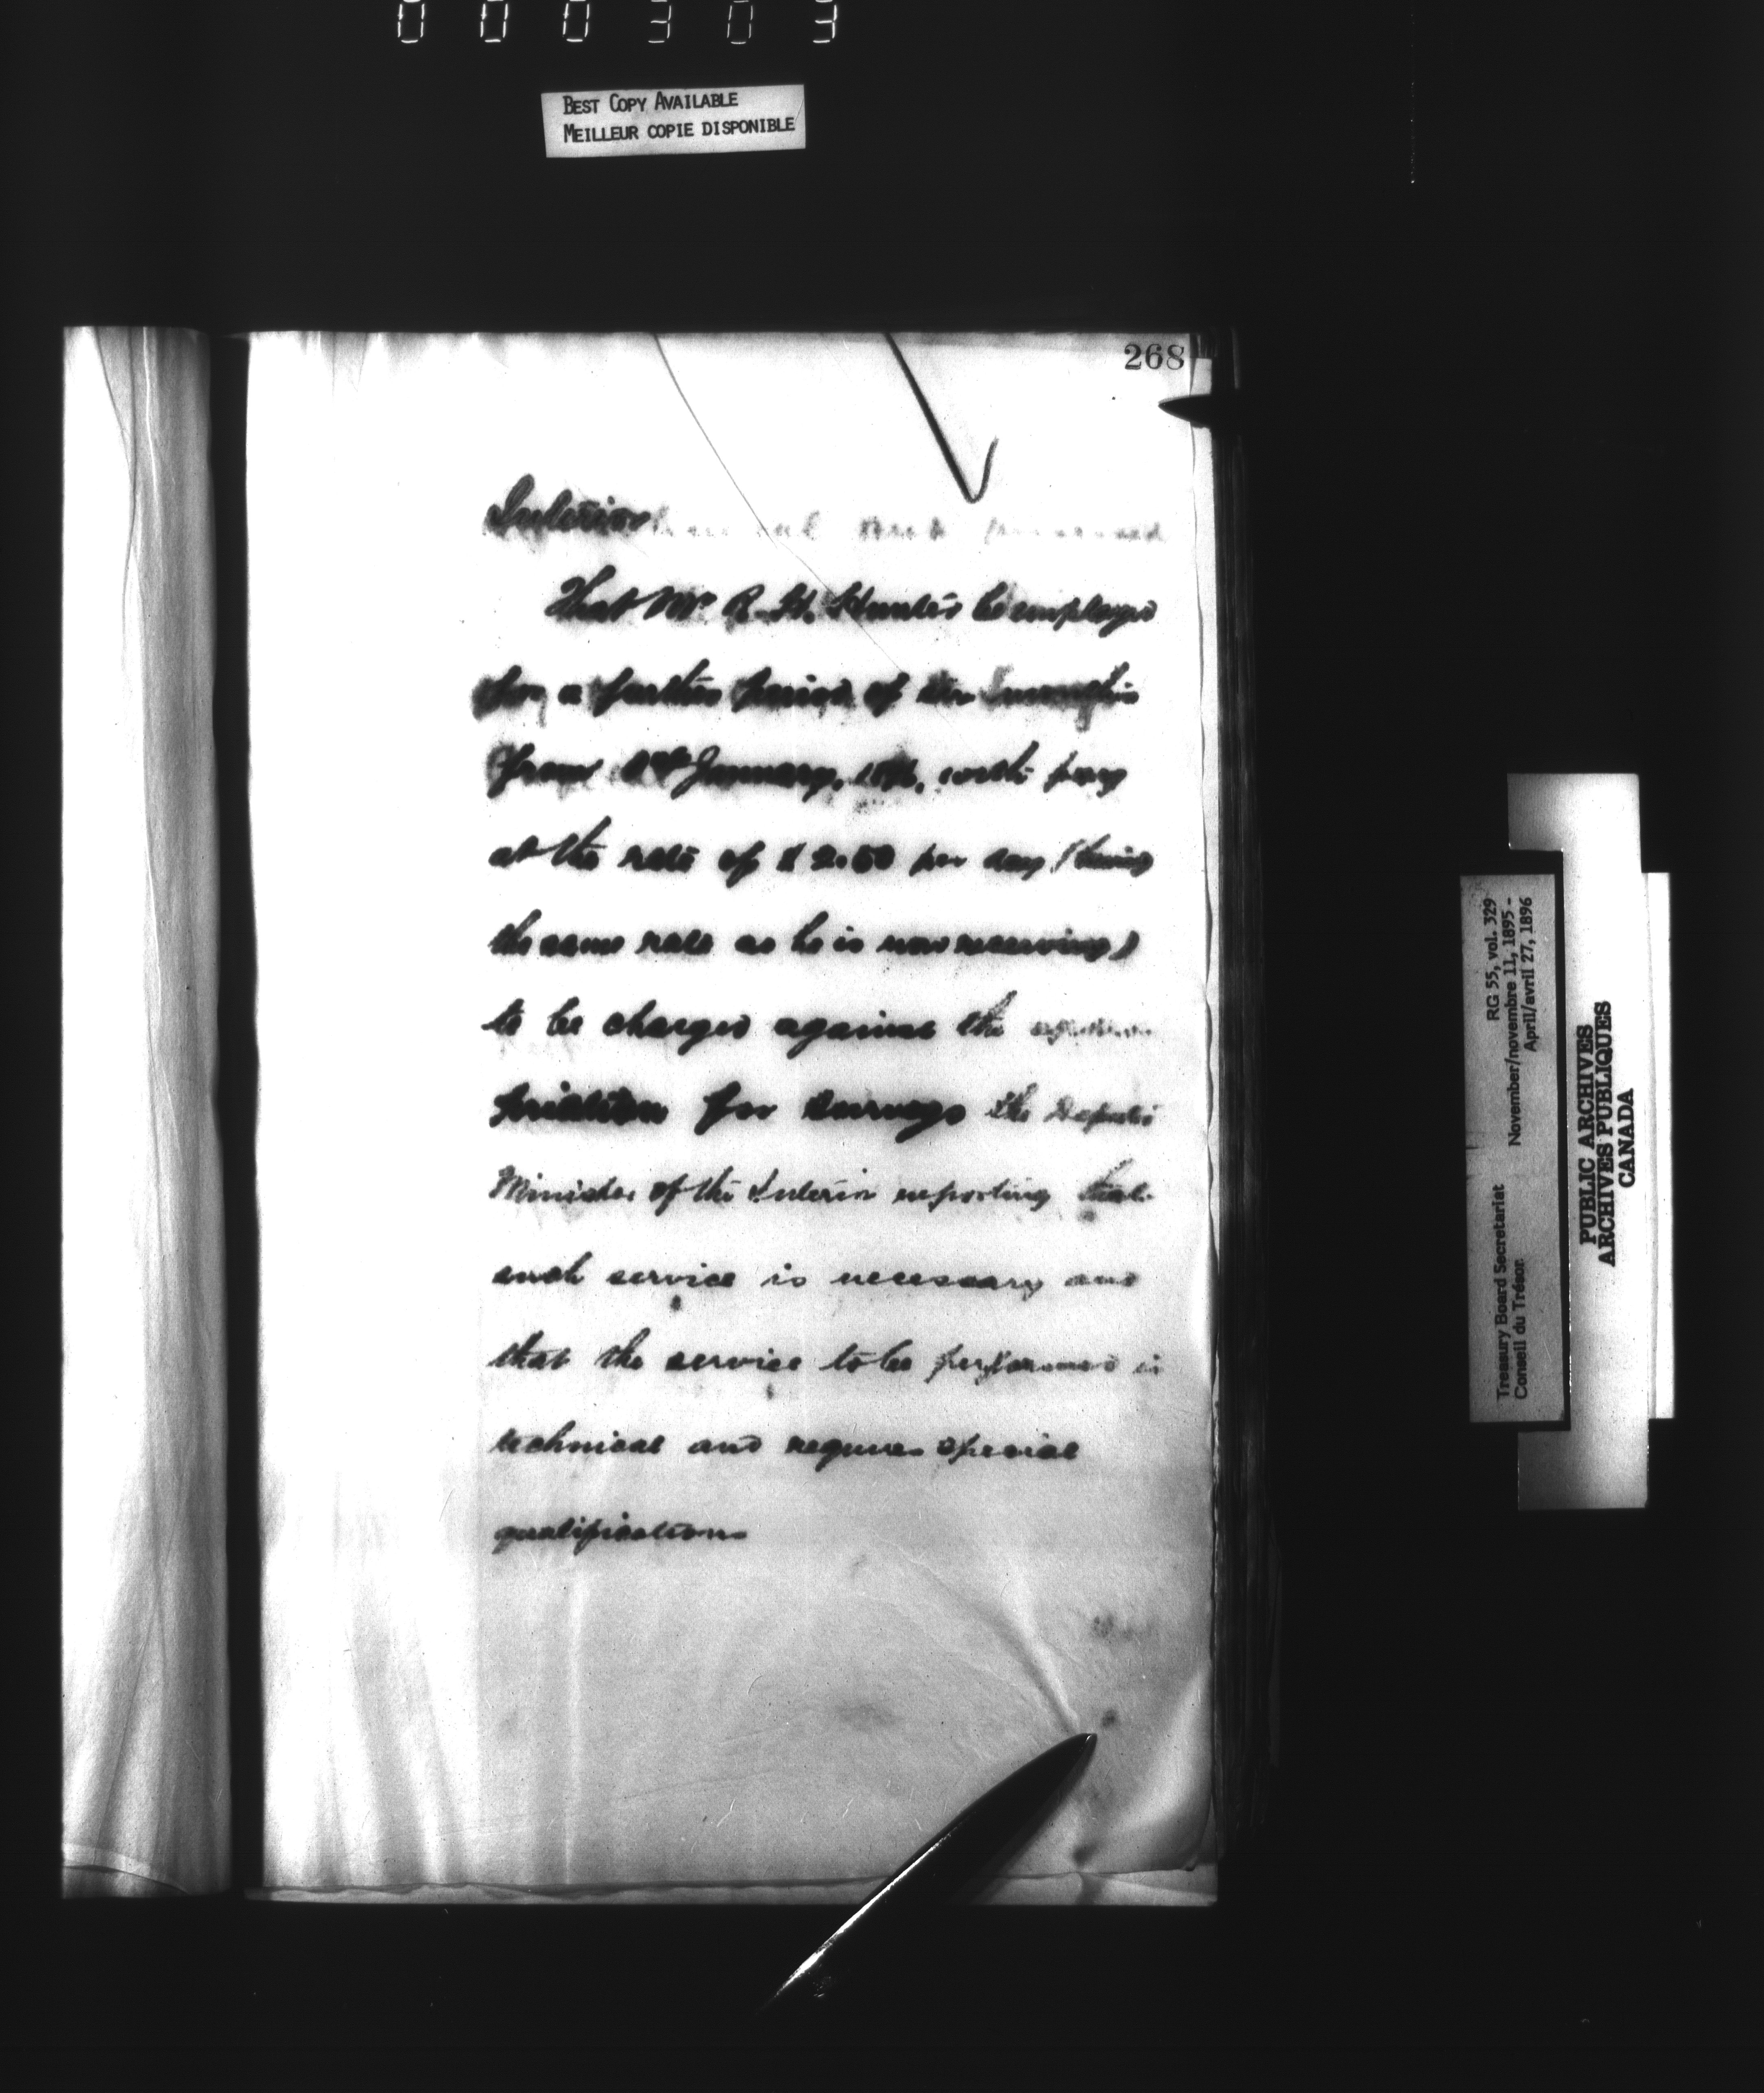 000303
BEST COPY AVAILABLE
MEILLEUR COPIE DISPONIBLE
268
Interior
That Mr. R. H. Hunter be employed
for a further period of six months
from 1st January, 1896, with pay
at the rate of $2.50 per day (being
the same rate as he is now receiving)
to be charged against the appro-
priation for surveys the Deputy
Minister of the Interior reporting that
such service is necessary and
that the service to be performed is
technical and requires special
qualifications
Treasury Board Secretariat RG 55, vol. 329
Conseil du Trésor November/novembre 11, 1895 -
April/avril 27, 1896
PUBLIC ARCHIVES
ARCHIVES PUBLIQUES
CANADA